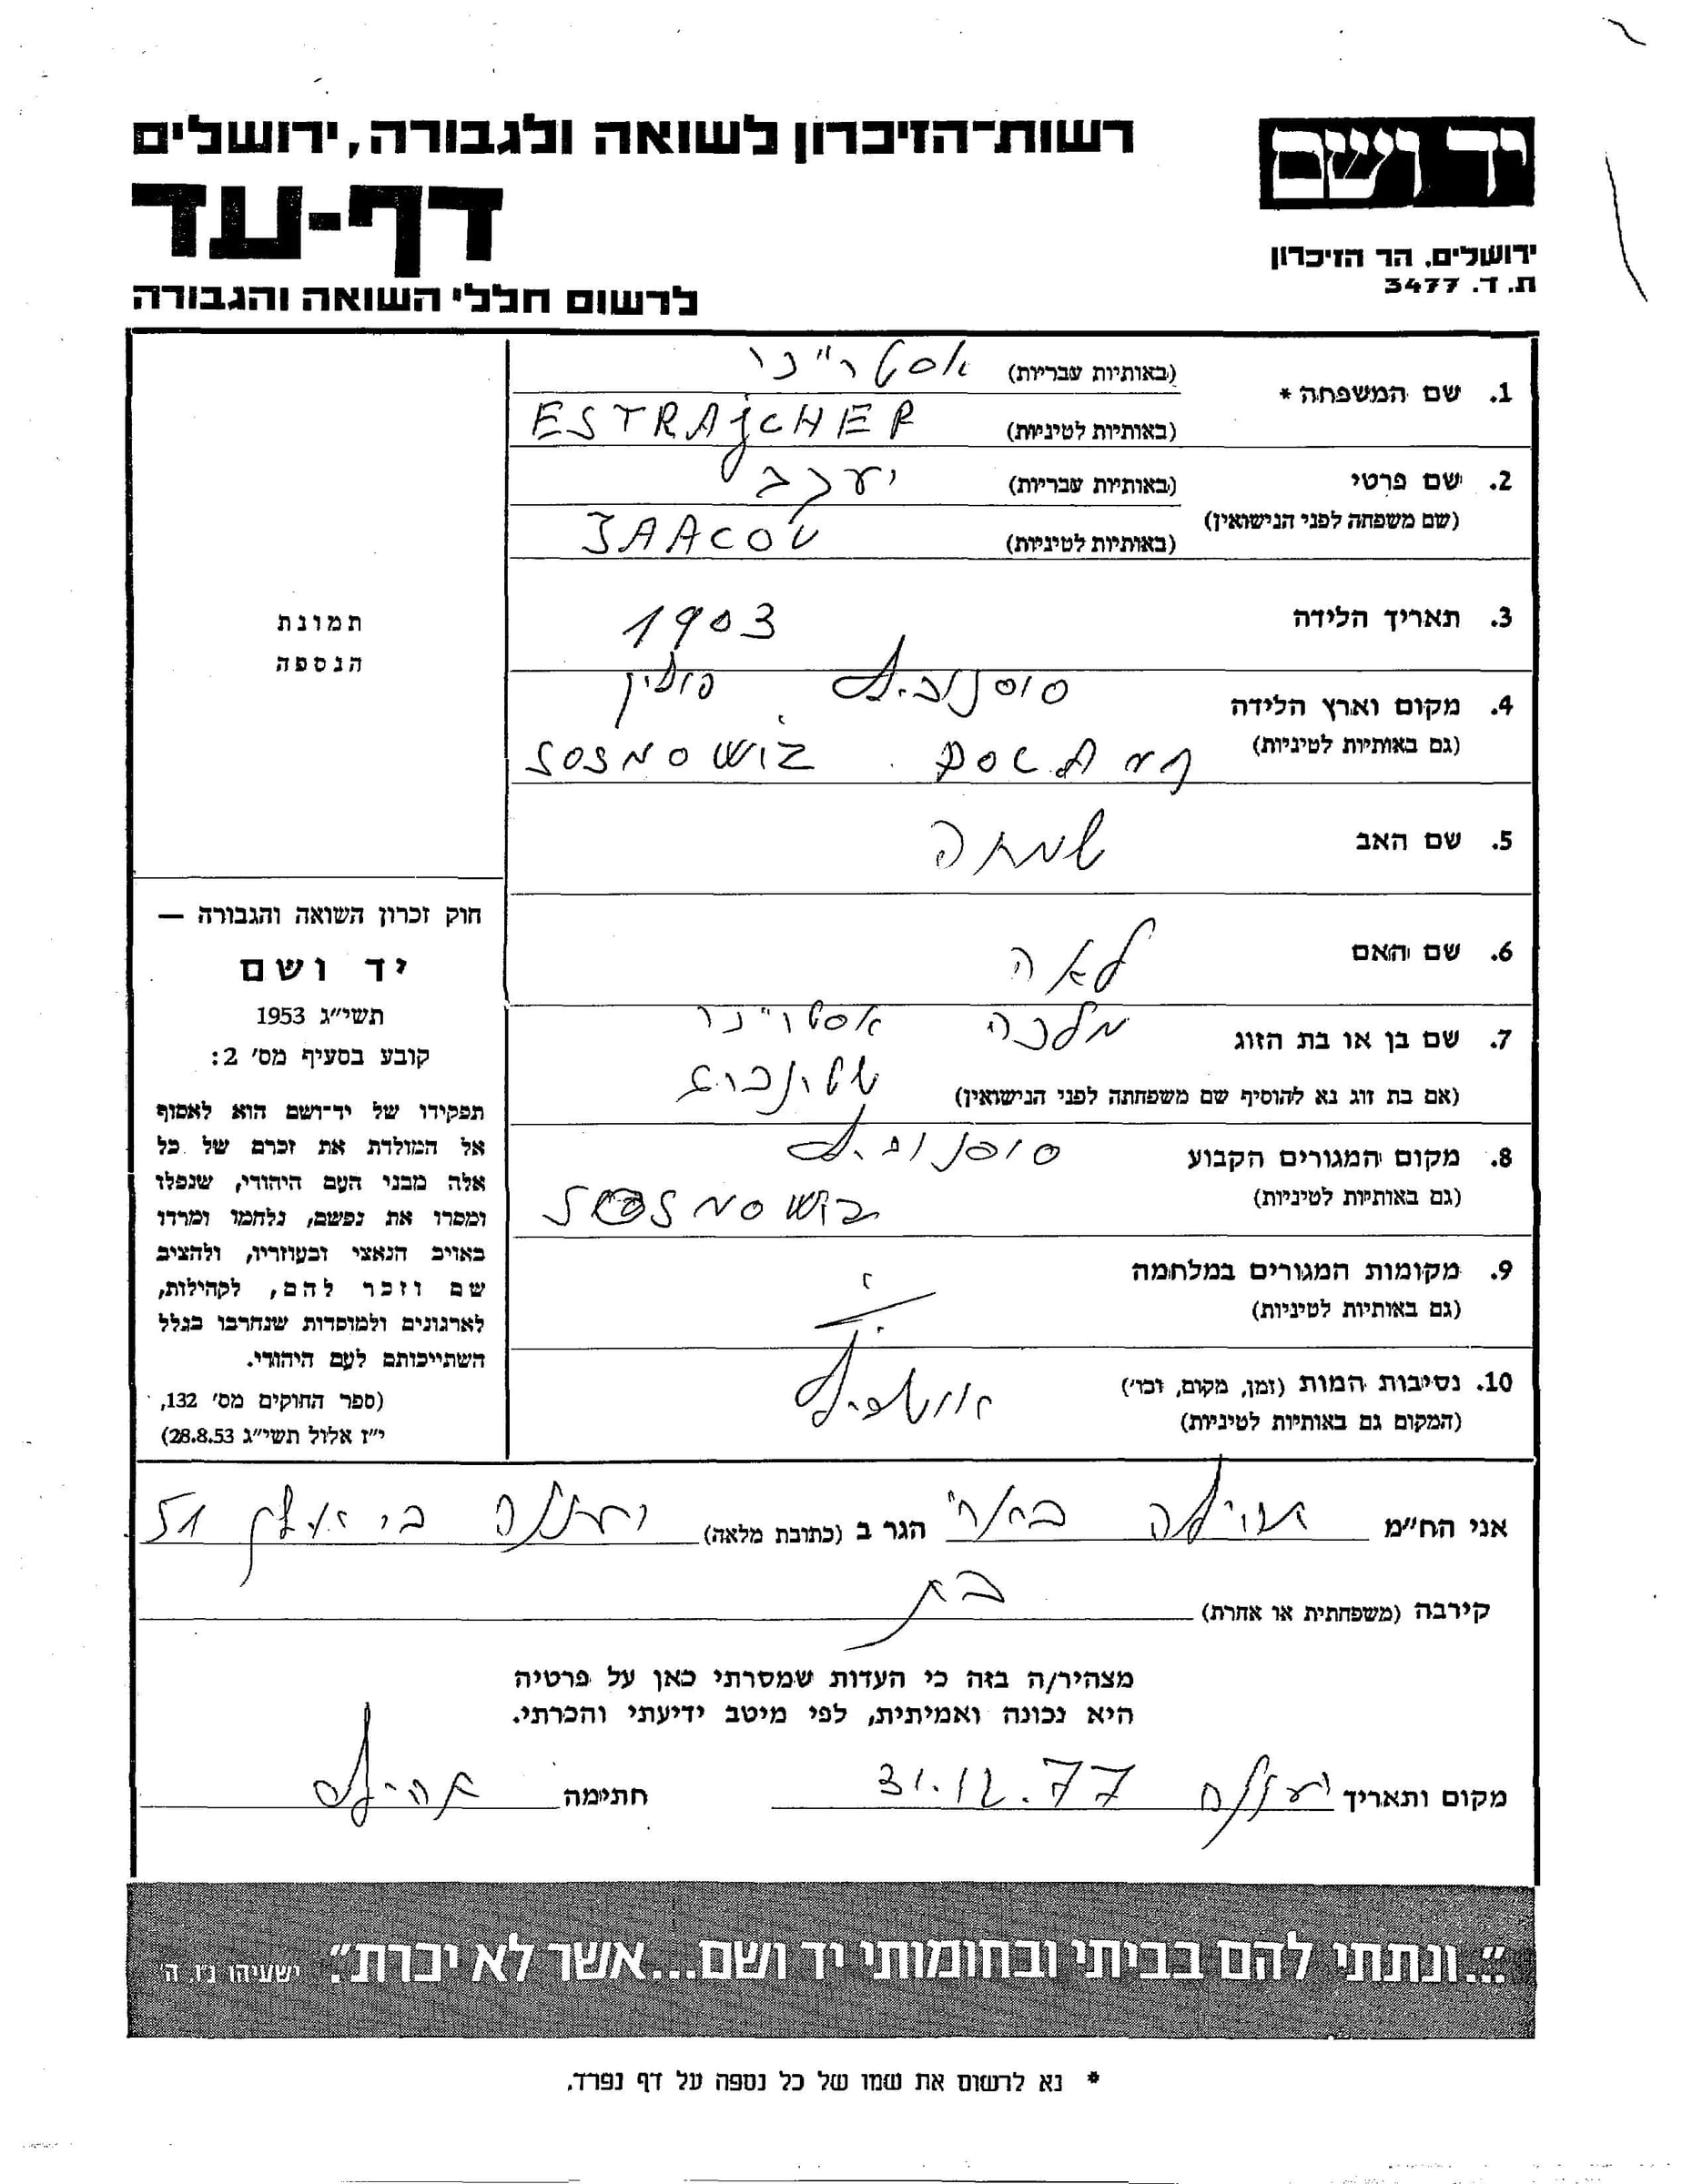 רשות־הזיכרון לשואה ולגבורה, ירושלים
דף-עד
לרשום חללי השואה והגבורה
יד ושם
ירושלים, הר הזיכרון
ת. ד. 3477
1. שם המשפחה * (באותיות עבריות)
(באותיות לטיניות) ESTRAjCHER
2. שם פרטי (באותיות עבריות) יעקב
(שם משפחה לפני הנישואין) (באותיות לטיניות) JAACOV
3. תאריך הלידה 1903
4. מקום וארץ הלידה סוסנוביץ פולין
(גם באותיות לטיניות) SOSNOWIZ
5. שם האב שמחה
6. שם האם לאה
7. שם בן או בת הזוג מלכה
(אם בת זוג נא להוסיף שם משפחתה לפני הנישואין)
8. מקום המגורים הקבוע סוסנוביץ
(גם באותיות לטיניות) SOSNOWIZ
9. מקומות המגורים במלחמה
(גם באותיות לטיניות)
10. נסיבות המות (זמן, מקום, וכו') אושביץ
(המקום גם באותיות לטיניות)
תמונת
הנספה
חוק זכרון השואה והגבורה —
יד ושם
תשי״ג 1953
קובע בסעיף מס׳ 2:
תפקידו של יד־ושם הוא לאסוף
אל המולדת את זכרם של כל
אלה מבני העם היהודי, שנפלו
ומסרו את נפשם, נלחמו ומרדו
באויב הנאצי ובעוזריו, ולהציב
שם וזכר להם, לקהילות,
לארגונים ולמוסדות שנחרבו בגלל
השתייכותם לעם היהודי.
(ספר החוקים מס׳ 132,
י״ז אלול תשי״ג 28.8.53)
אני הח״מ הגר ב (כתובת מלאה) 51
קירבה (משפחתית או אחרת) בת
מצהיר/ה בזה כי העדות שמסרתי כאן על פרטיה
היא נכונה ואמיתית, לפי מיטב ידיעתי והכרתי.
מקום ותאריך 31.12.77 חתימה
"...ונתתי להם בביתי ובחומותי יד ושם...אשר לא יכרת". ישעיהו נ״ו, ה׳
* נא לרשום את שמו של כל נספה על דף נפרד.